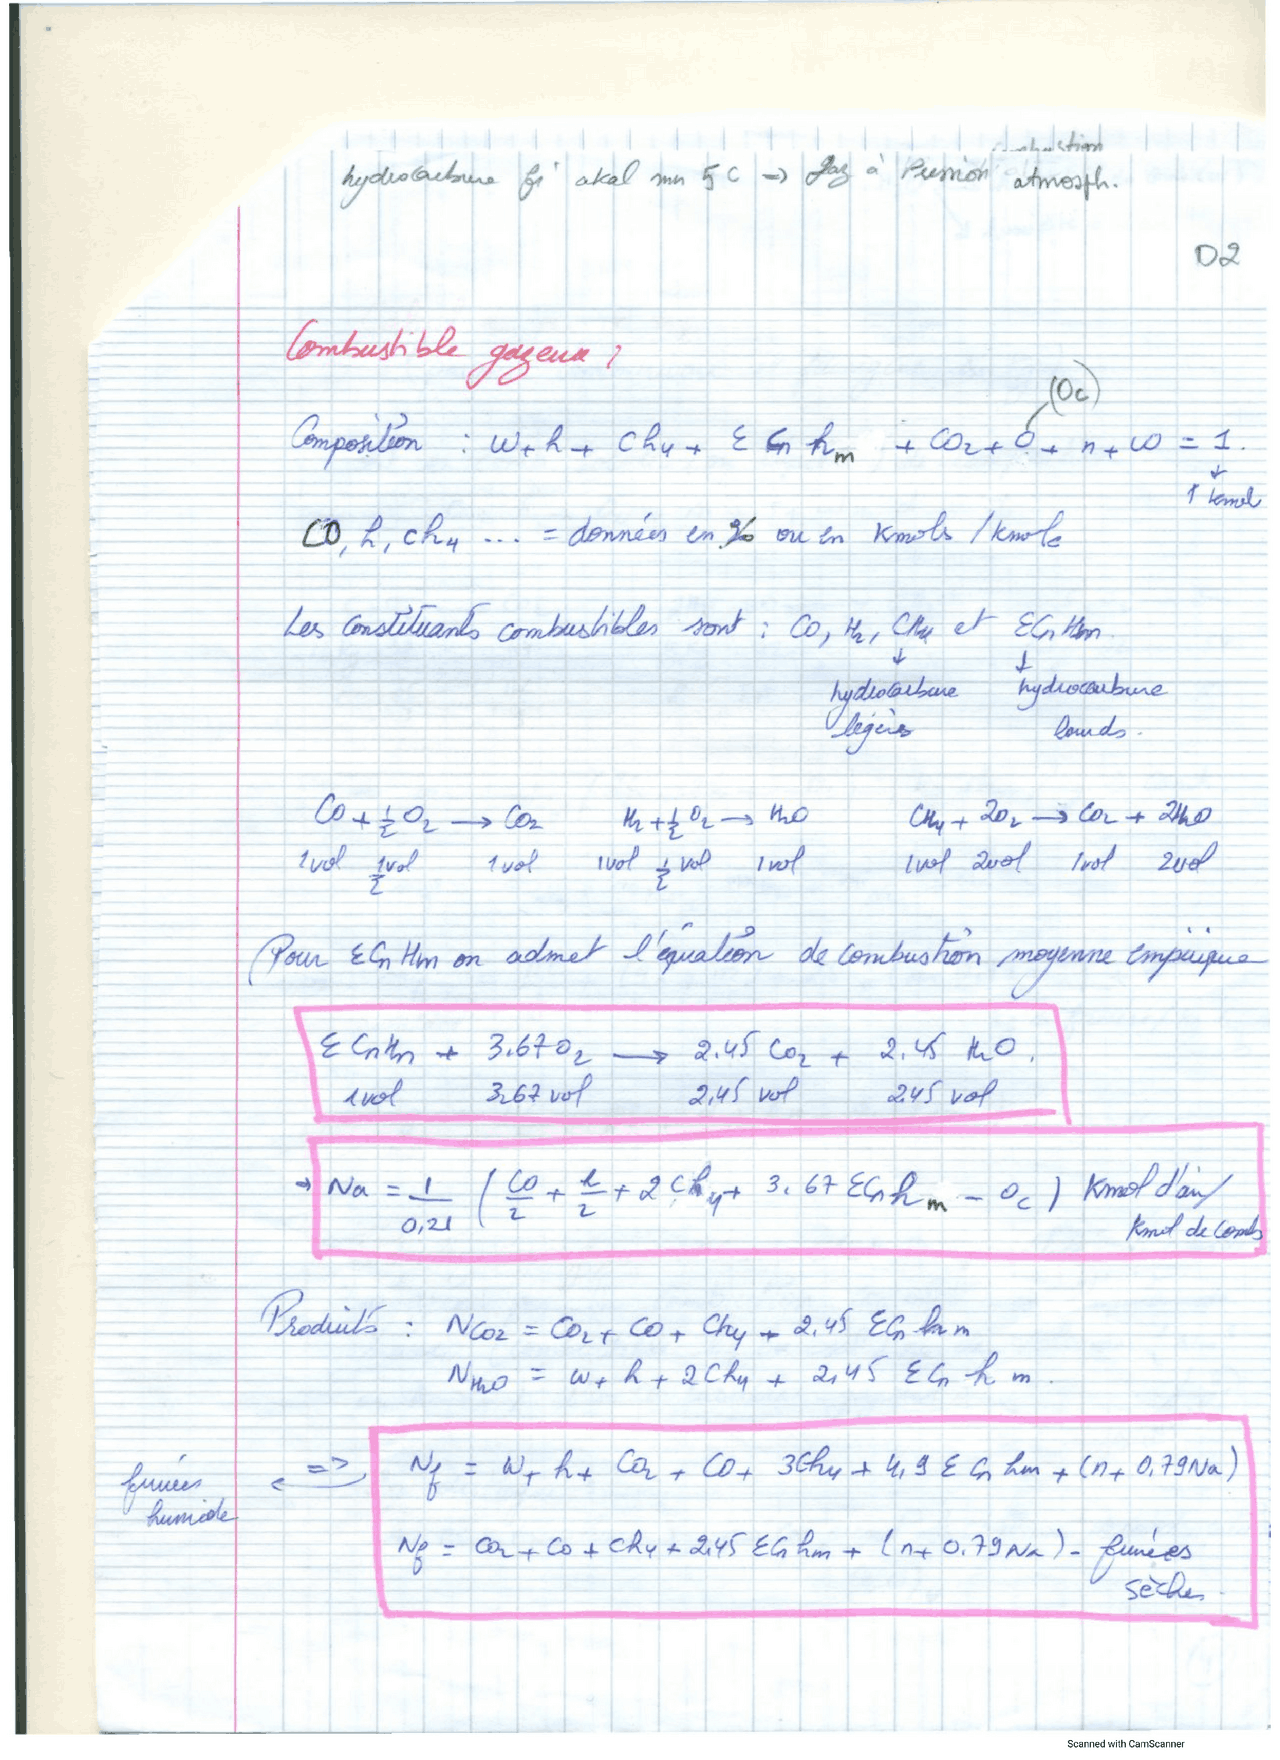 combustion
hydrocarbure fi akal mn 5C => gaz à Pression atmosph.
D2
Combustible gazeux :
(Oc)
Composition : w + h + Ch4 + Σ Cn hm + CO2 + O + n + CO = 1.
↓
1 kmol
CO, h, ch4 ... = données en % ou en Kmols / kmole
Les constituants combustibles sont : CO, H2, CH4 et ΣCn Hm.
↓ ↓
hydrocarbure hydrocarbure
légers lourds.
CO + 1/2 O2 → CO2 H2 + 1/2 O2 → H2O CH4 + 2O2 → CO2 + 2H2O
1vol 1/2 vol 1vol 1vol 1/2 vol 1vol 1vol 2vol 1vol 2vol
Pour ΣCn Hm on admet l'équation de combustion moyenne empirique
Σ CnHm + 3.67O2 → 2.45 CO2 + 2.45 H2O.
1vol 3,67 vol 2,45 vol 2,45 vol
→ Na = 1/0,21 ( CO/2 + h/2 + 2 Ch4 + 3.67 ΣCn hm - Oc ) Kmol d'air/
Kmol de comb
Produits : NCO2 = CO2 + CO + Ch4 + 2,45 ΣCn hm
NH2O = w + h + 2Ch4 + 2,45 ΣCn hm.
=> Nf = w + h + CO2 + CO + 3Ch4 + 4,9 Σ Cn hm + (n + 0,79Na)
fumées
humide
Nf = CO2 + CO + Ch4 + 2,45 ΣCn hm + (n + 0.79 Na) - fumées
sèches.
Scanned with CamScanner